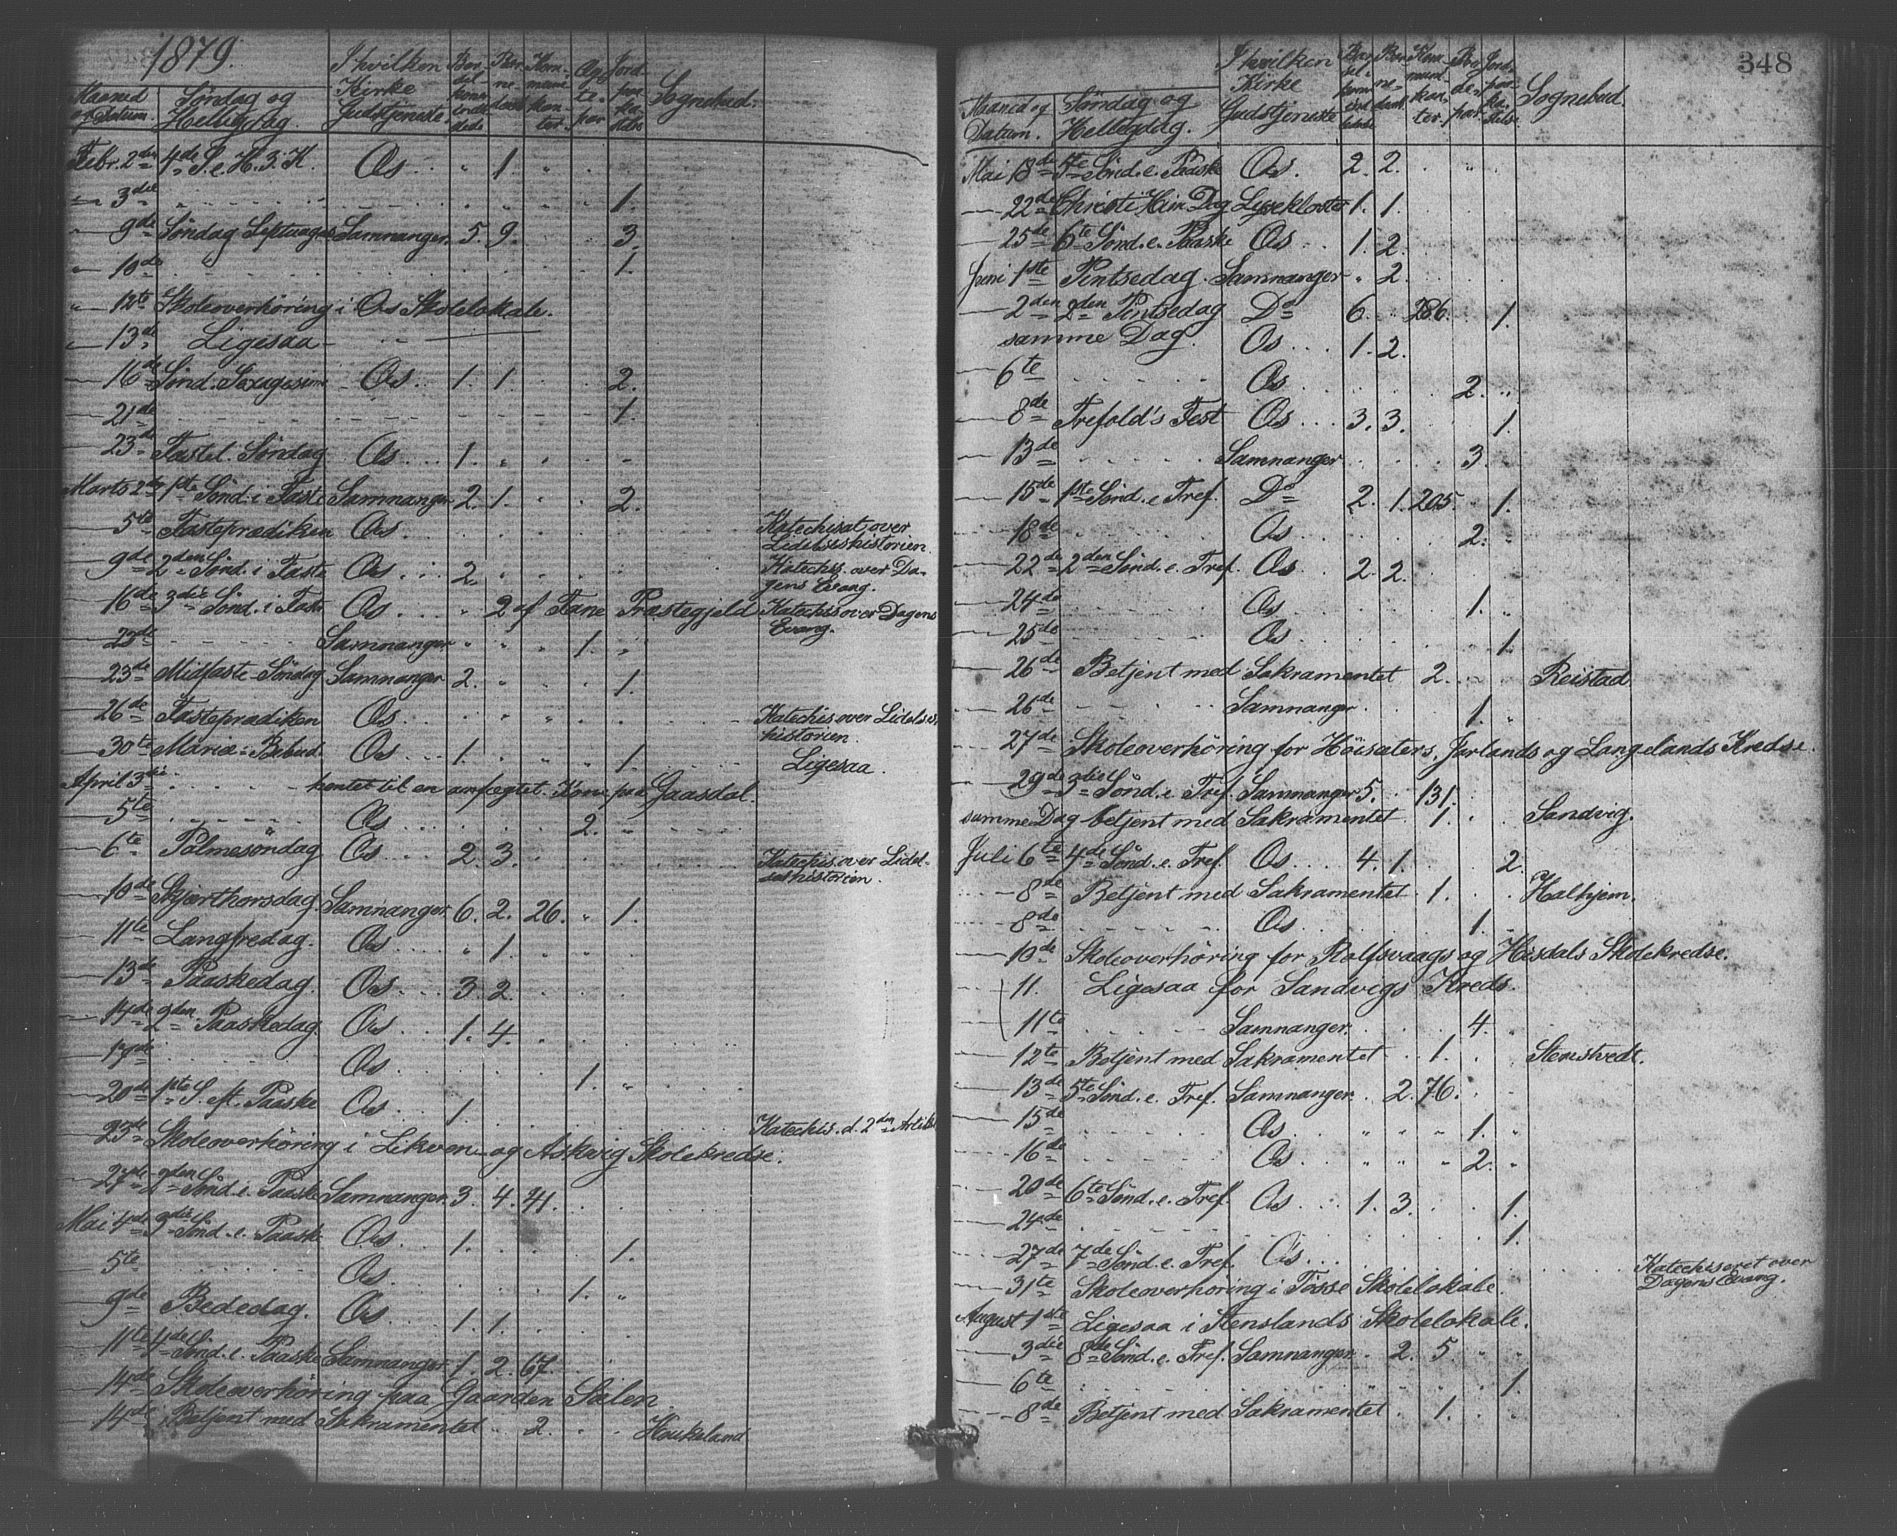 1879.
Maaned og Datum. Søndag og Helligdag. I hvilken Kirke Gudstjeneste. Sognebud.
Febr. 2den 4de S. e. H. 3. K. Os " 1 "
" 3die 1.
" 9de Søndag Septuages Samnanger. 5. 9. 3.
" 10de 1.
" 12te Skoleoverhøring i Os Skolelokale.
" 13de Ligesaa
16de Sønd. Sexagesima Os. 1. 1. 2.
21de 1.
23de Fastel. Søndag Os 1. "
Marts 2den 1ste Sønd. i Faste Samnanger 2. 1. 2.
5te Fasteprædiken Os. Katechisat. over Lidelseshistorien.
9de 2den Sønd. i Faste Os. 2. " Katechis. over Dagens Evang.
16de 3die Sønd. i Faste Os. " 2 af Fane Præstegjeld Katechis over Dagens Evang.
Samnanger " " " 1. "
23de Midfaste-Søndag Samnanger 2. " 1.
26de Fasteprædiken Os. Katechis over Lidelseshistorien.
30te Mariæ-Bebud. Os. 1. 1. Ligesaa.
April 3die hentet til en anfægtet Kone paa Gaasdal.
5te Os 2. "
6te Palmesøndag Os 2. 3. Katechis. over Lidelseshistorien.
10de Skjærthorsdag Samnanger. 6. 2. 26. " 1.
11te Langfredag. Os. " 1.
13de Paaskedag. Os. 3. 2.
14de 2den Paaskedag Os. 1. 4.
Os. 1. "
20de 1ste S. ft. Paaske Os. 1. Katechis. d. 2den Artikel
23de Skoleoverhøring i Likven og Askvig Skolekredse.
27de 2den Sønd. e. Paaske Samnanger. 3. 4. 41.
Mai 4de 3die Sønd. e. Paask. Os. 1. 1.
5te Os. 1. "
9de Bededag. Os. 1. 1.
11te 4de Sønd. e. Paaske Samnanger. 1. 2. 67.
14de Skoleoverhøring paa Gaarden Salen
14de Betjent med Sakramentet 2. Haukeland
348
Maaned og Datum. Søndag og Hellegdag. I hvilken Kirke Gudstjeneste Sognebud.
Mai 18de 5te Sønd. e. Paaske Os. 2. 2.
22de Christi Him. Dag Lysekloster 1. 1.
25de 6te Sønd. e. Paaske Os. 1. 2.
Juni 1ste Pintsedag. Samnanger " 2.
2den 2den Pintsedag Do 6. 286. 1.
samme Dag. Os. 1. 2.
6te Os 2. "
8de Trefold's Fest Os 3. 3. 1.
13de Samnanger 3.
15de 1ste Sønd. e. Tref. Do 2. 1. 205. 1.
18de Os 2. "
22de 2den Sønd. e. Tref. Os 2. 2.
24de Os 1. "
25de Os 1.
26de Betjent med Sakramentet 2. Reistad
26de Samnangr 1. "
27de Skoleoverhøring for Høisæters, Jarlands og Langelands Kredse.
29de 3die Sønd. e. Tref. Samnanger 5. 131.
samme Dag betjent med Sakramentet 1. Sandvig.
Juli 6te 4de Sønd. e. Tref. Os 4. 1. 2.
8de Betjent med Sakramentet 1. Halhjem.
8de Os. 1.
10de Skoleoverhøring for Rolfsvaags og Hisdals Skolekredse.
11. Ligesaa for Sandvigs Kreds.
11te Samnanger. 4.
12te Betjent med Sakramentet 1.
13de 5te Sønd. e. Tref. Samnanger. 2. 76.
15de Os " " " 1. "
16de Os " " " 2. "
20de 6te Sønd. e. Tref. Os 1. 3. 1.
24de 1
27de 7de Sønd. e. Tref. Os. Katechiseret over Dagens Evang.
31te Skoleoverhøring i Tøsse Skolelokale.
August 1ste Ligesaa i Stenslands Skolelokale.
3die 8de Sønd. e. Tref. Samnanger. 2. 5.
6te 1.
8de Betjent med Sakramentet. 1.